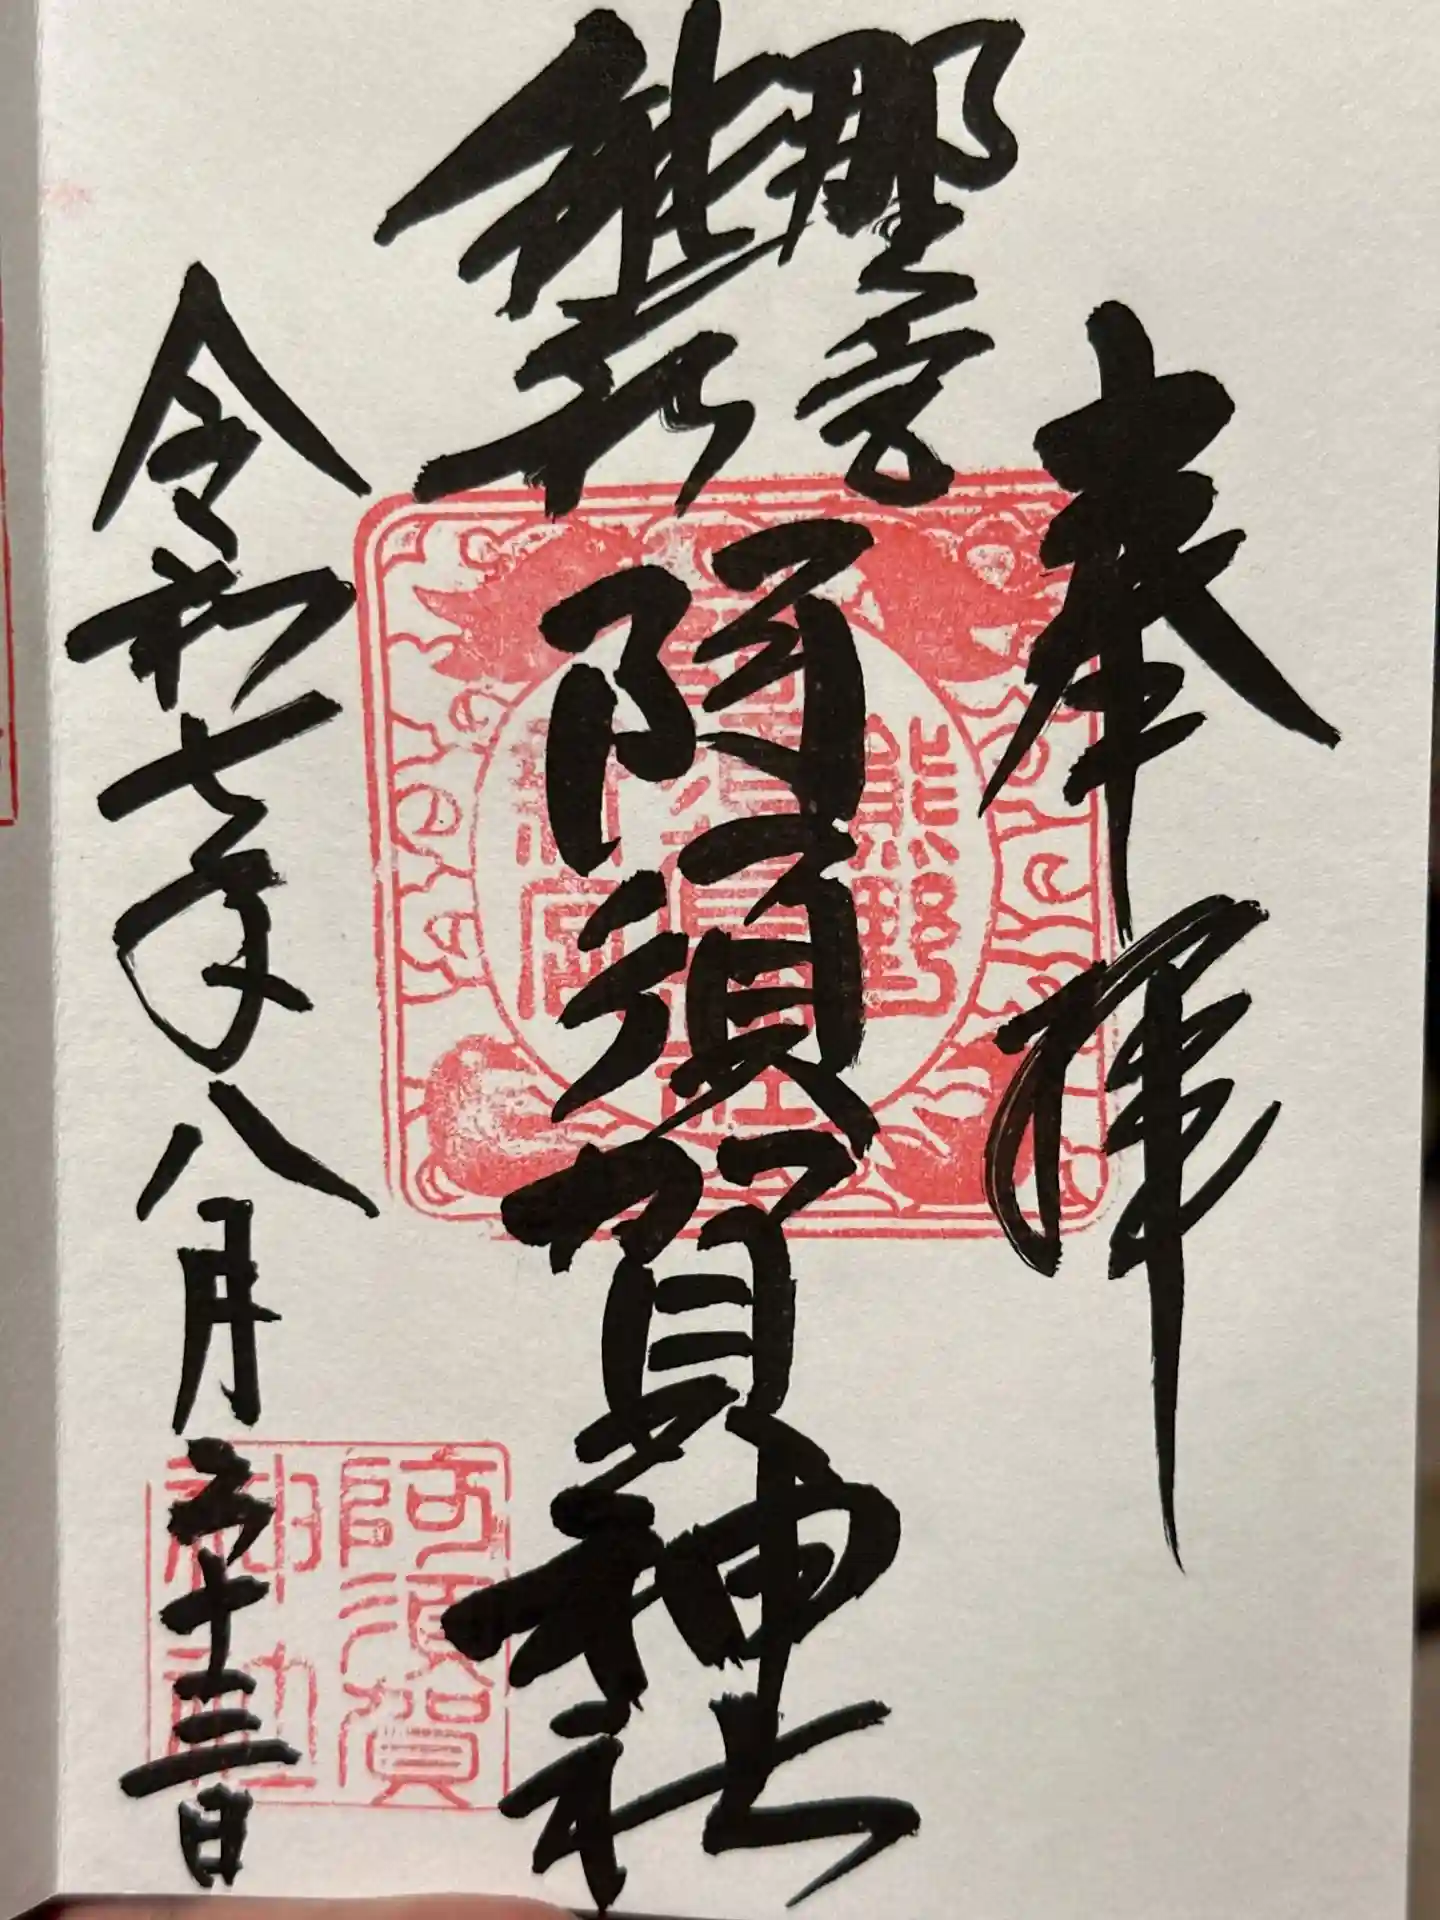 奉拝
熊野
新宮
阿須賀神社
令和七年八月二十三日
熊野
新宮
阿須賀
神社